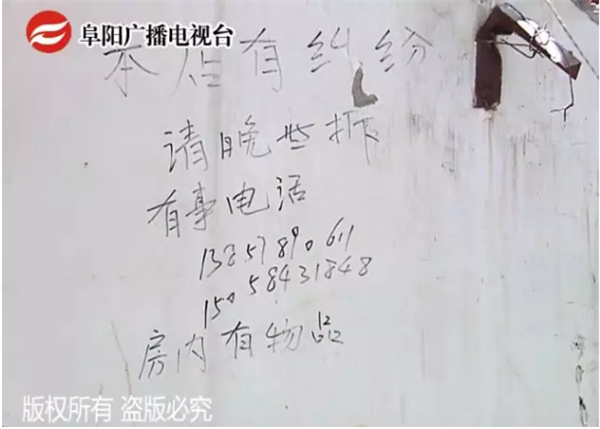 阜阳广播电视台
本店有纠纷
请晚些拆
有事电话
13257890611
15058431848
房内有物品
版权所有 盗版必究